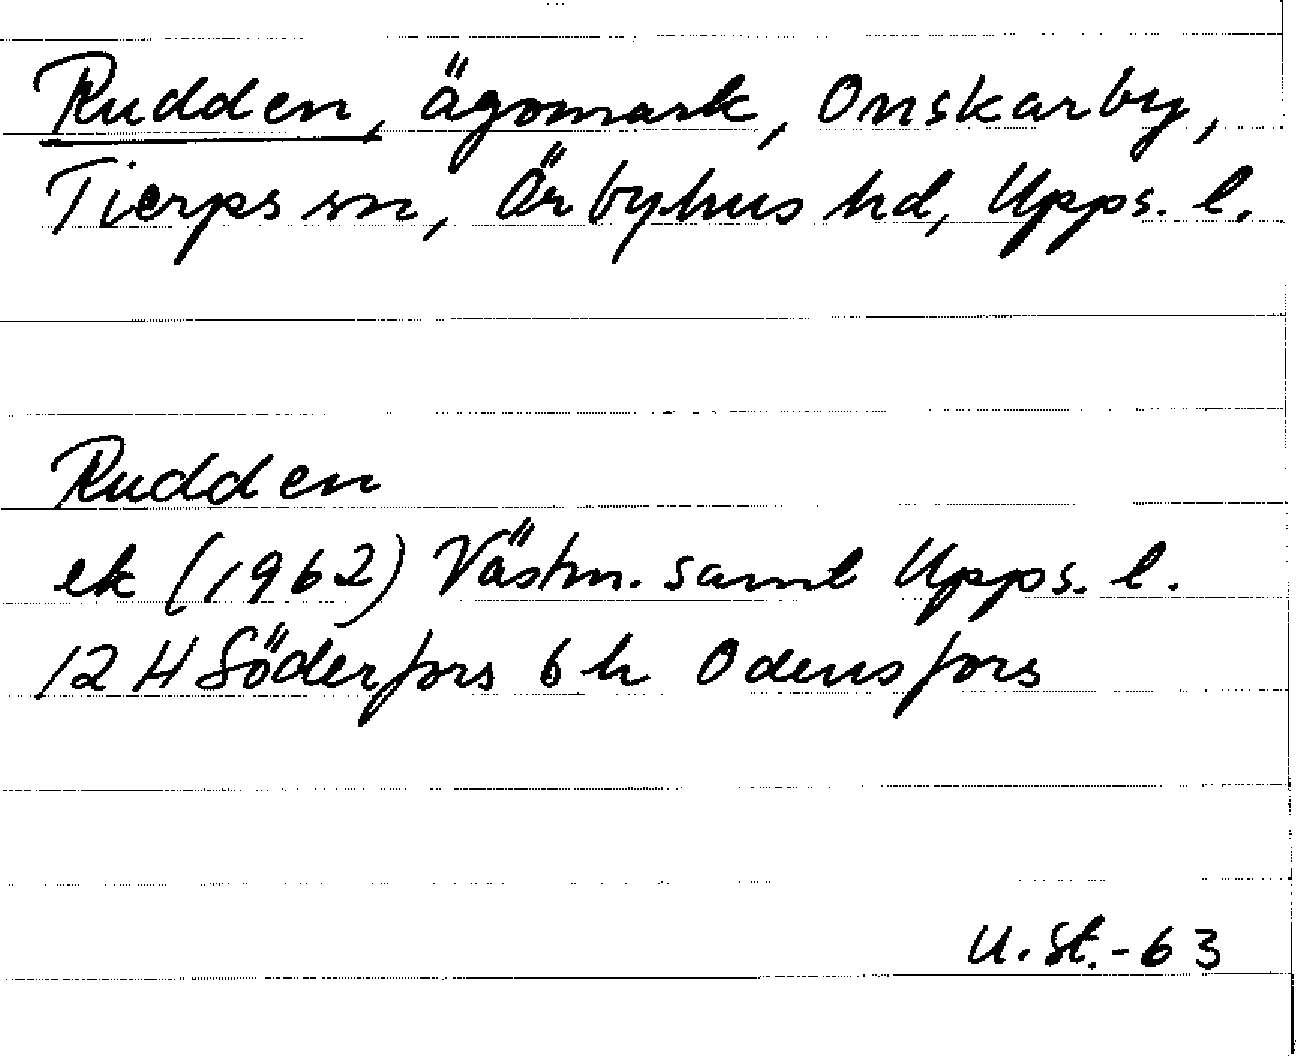 Rudden, ägomark, Onskarby,
Tierps sn, Örbyhus hd, Upps. l.
Rudden
ek (1962) Västm. samt Upps. l.
12 H Söderfors 6 h Odensfors
U. St. -63